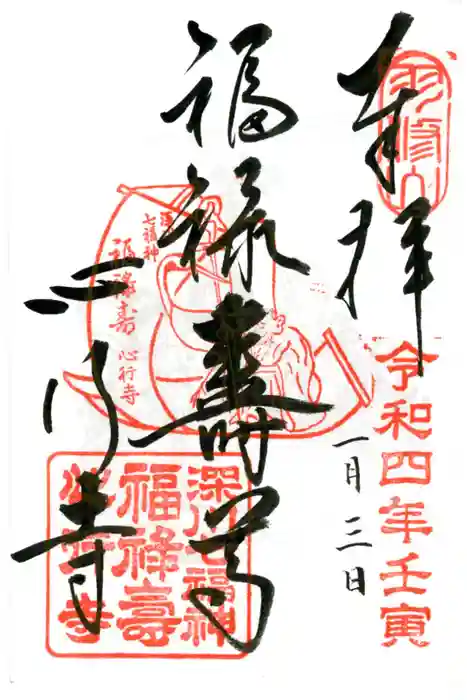 奉拝
双修山
令和四年壬寅
一月三日
福禄寿尊
深川
七福神
福禄寿
心行寺
心行寺
深川七福神
福禄壽
心行寺